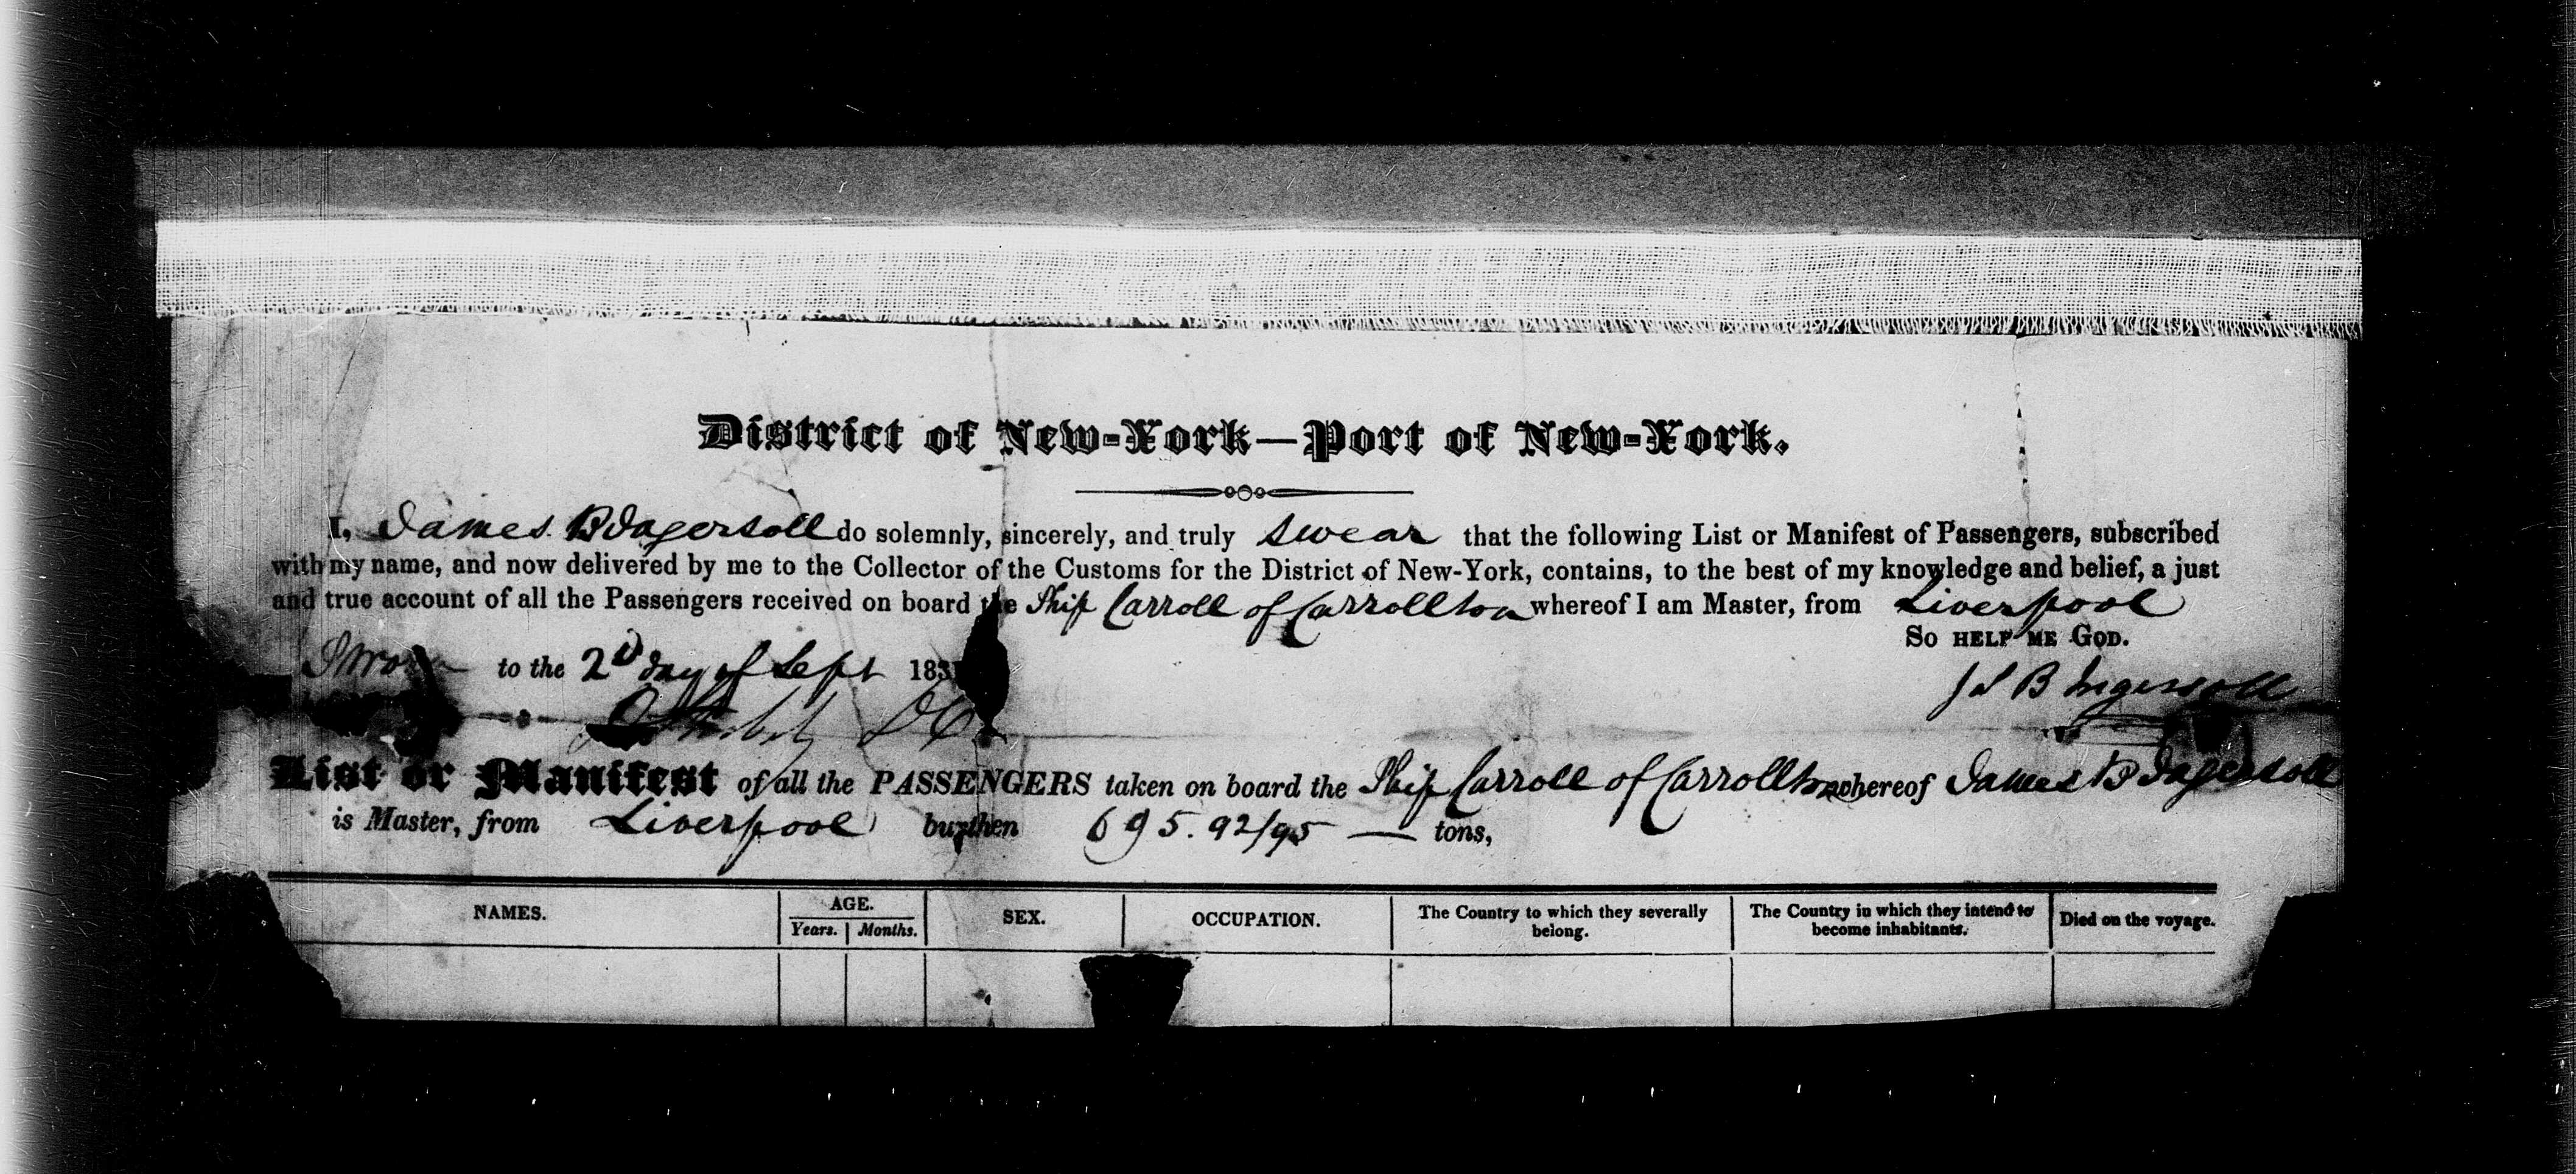 District of New-York—Port of New-York.
I, James B Ingersoll do solemnly, sincerely, and truly swear that the following List or Manifest of Passengers, subscribed
with my name, and now delivered by me to the Collector of the Customs for the District of New-York, contains, to the best of my knowledge and belief, a just
and true account of all the Passengers received on board the Ship Carroll of Carrollton whereof I am Master, from Liverpool
So help me God.
Sworn to the 2d day of Sept 183
Js B Ingersoll
List or Manifest of all the PASSENGERS taken on board the Ship Carroll of Carrollton whereof James B Ingersoll
is Master, from Liverpool burthen 695. 92/95 — tons,
NAMES. AGE. SEX. OCCUPATION. The Country to which they severally belong. The Country in which they intend to become inhabitants. Died on the voyage.
Years. Months.